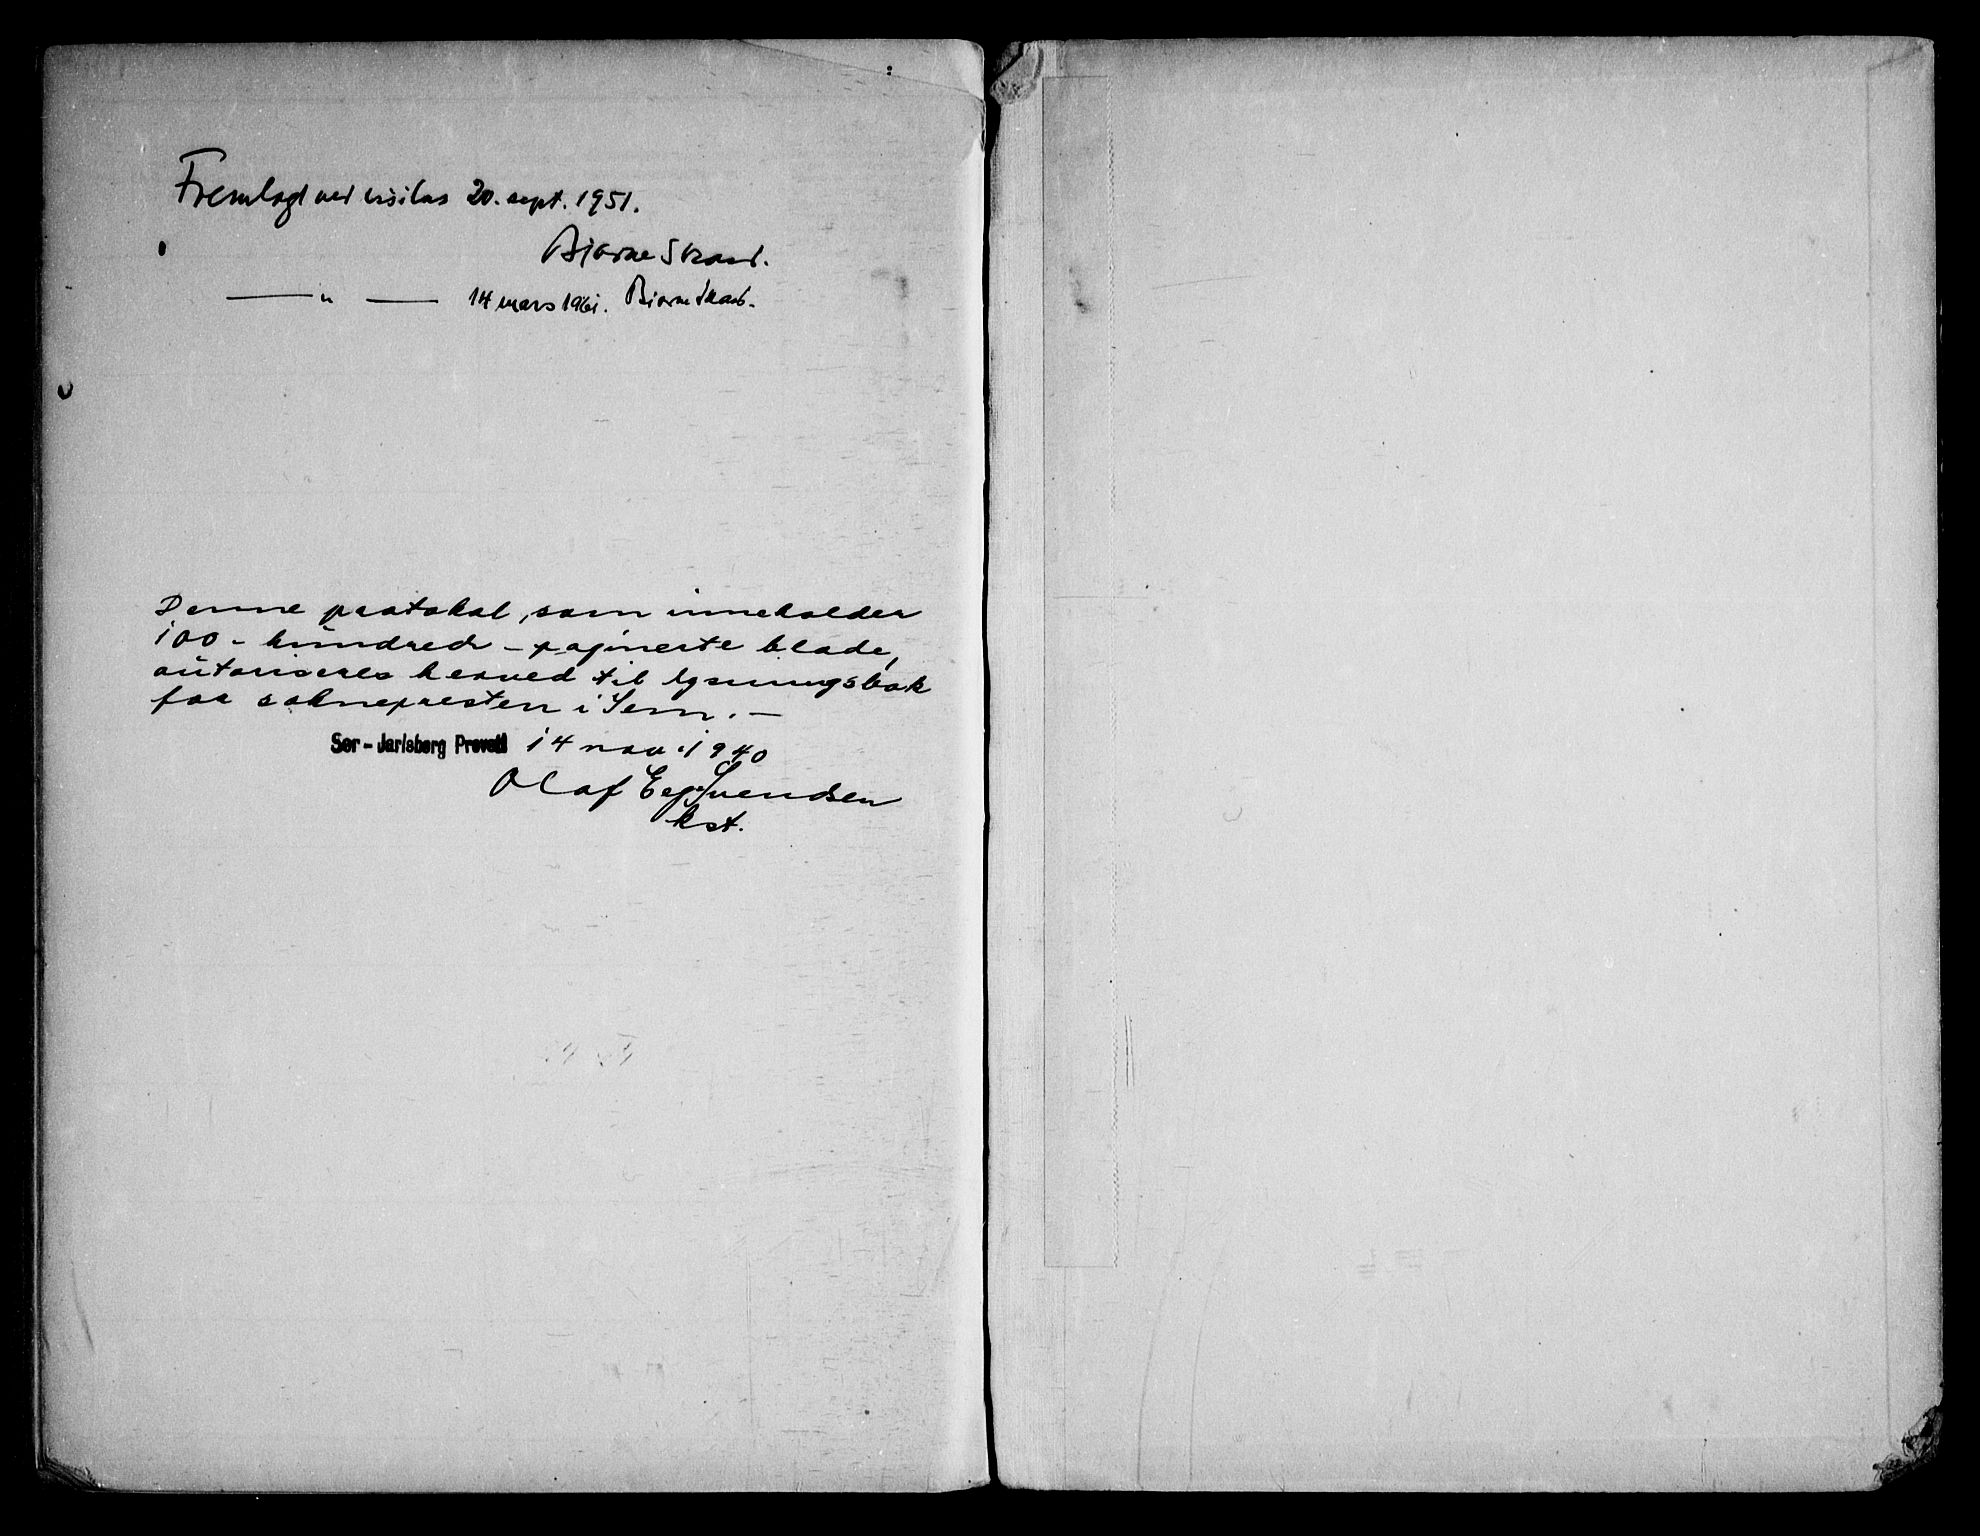 Fremlagt ved visitas 20. sept. 1951.
Bjarne Skard.
—— " —— 14 mars 1961. Bjarne Skard.
Denne protokol, som inneholder
100 - hundrede - paginerte blade,
autoriseres herved til lysningsbok
for soknepresten i Sem. —
Sør-Jarlsberg Prosti 14 nov. 1940
Olaf Eeg Svendsen
kst.